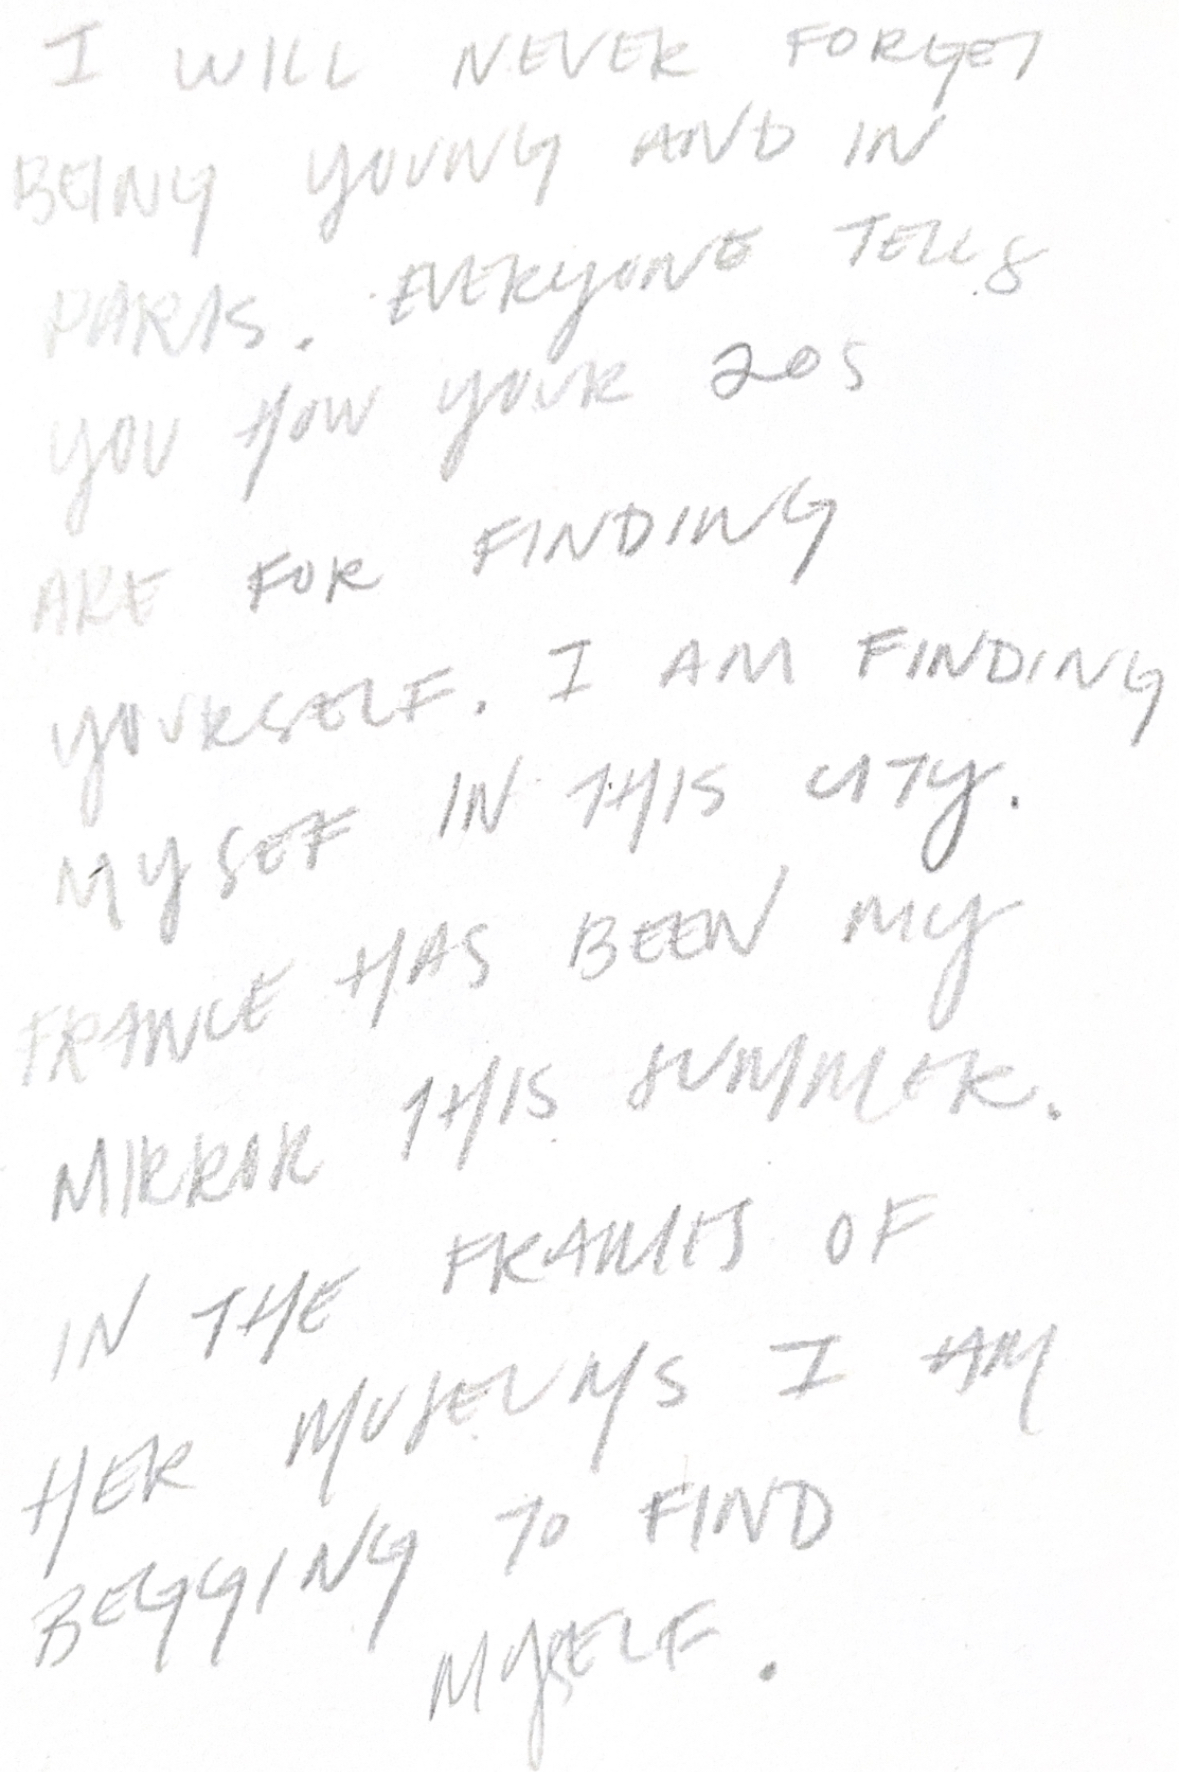 I WILL NEVER FORGET
BEING YOUNG AND IN
PARIS. EVERYONE TELLS
YOU HOW YOUR 20S
ARE FOR FINDING
YOURSELF. I AM FINDING
MYSEF IN THIS CITY.
FRANCE HAS BEEN MY
MIRROR THIS SUMMER.
IN THE FRAMES OF
HER MUSEUMS I AM
BEGGING TO FIND
MYSELF.